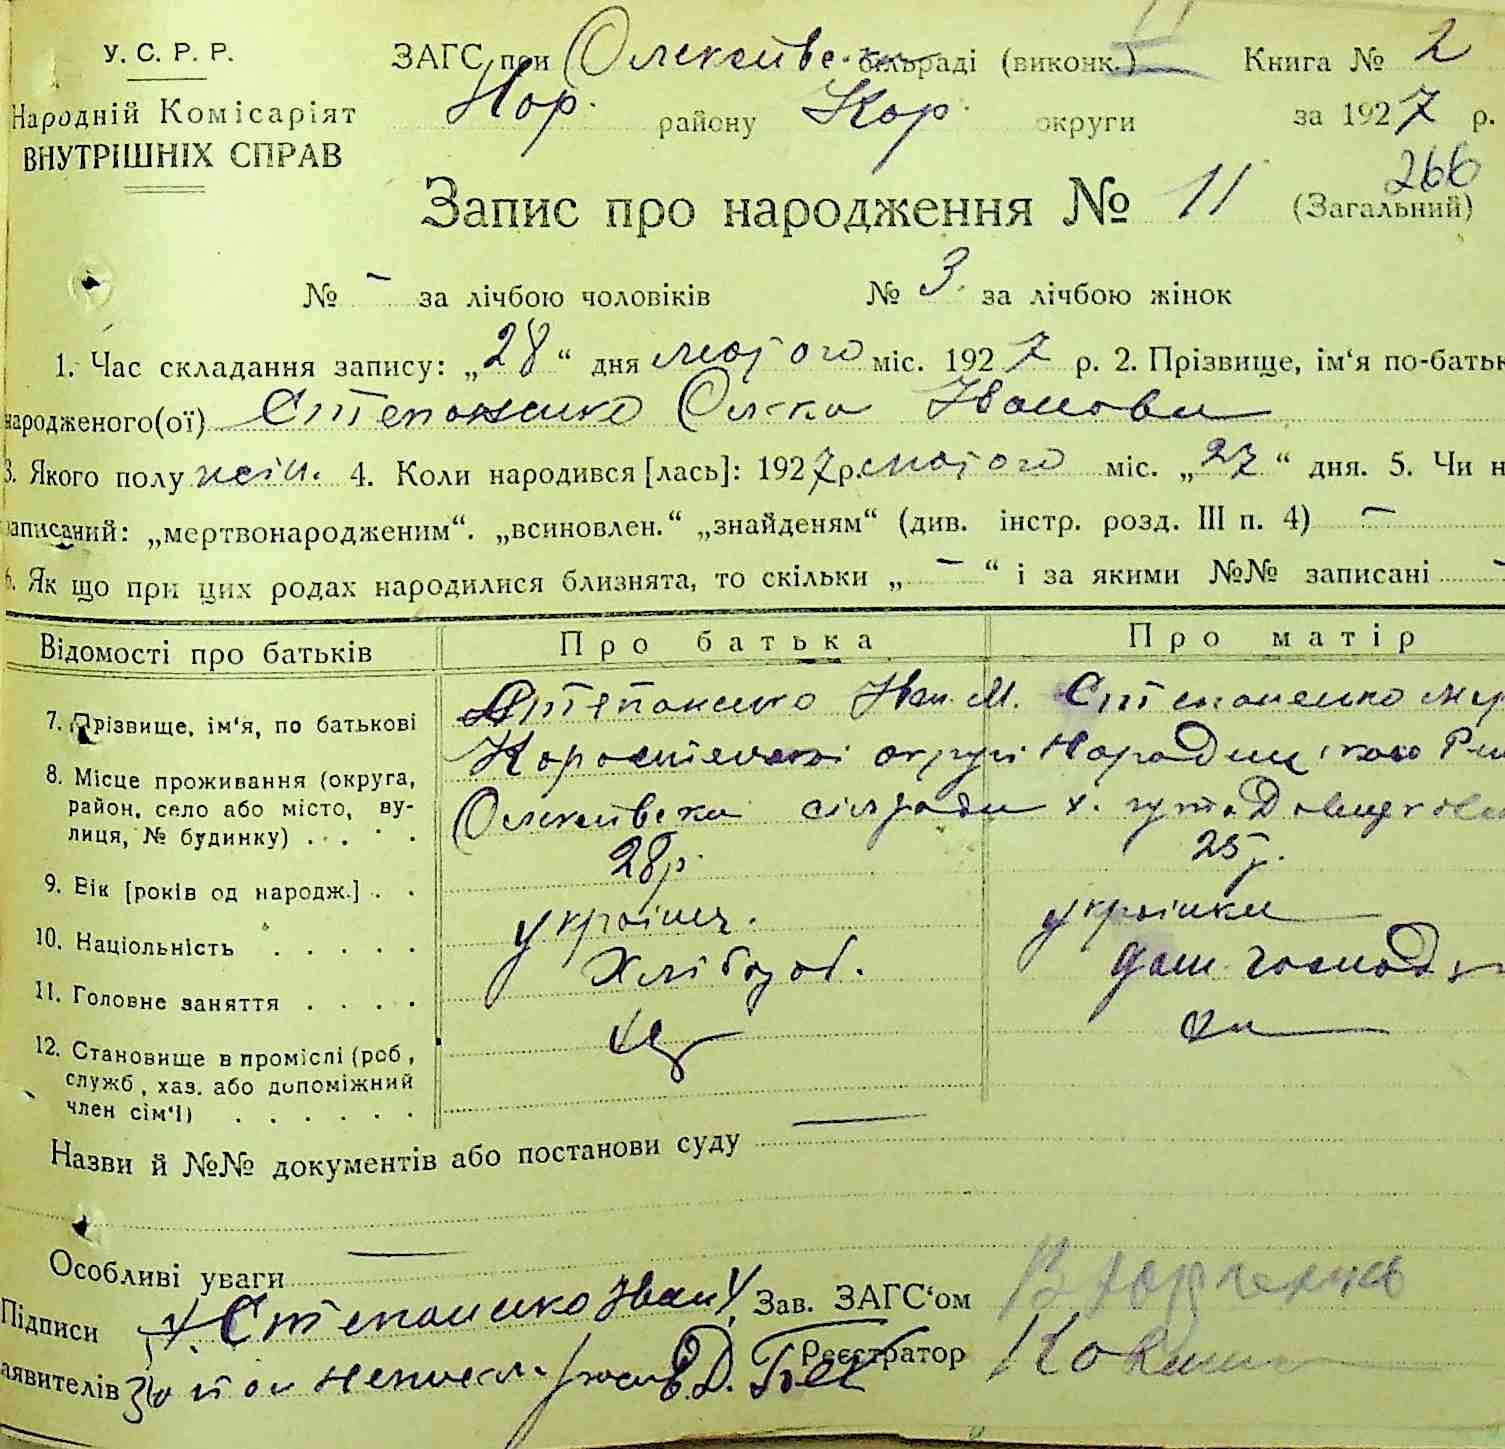 У. С. Р. Р.
Народній Комісаріят
ВНУТРІШНІХ СПРАВ
ЗАГС при Олексіївс. сільраді (виконк.) Книга № 2
Нар. району Кор. округи за 1927 р.
266
Запис про народження № 11 (Загальний)
№ - за лічбою чоловіків № 3 за лічбою жінок
1. Час складання запису: „28“ дня лютого міс. 1927 р. 2. Прізвище, ім‘я по-батьк
народженого(ої) Степаненко Іванова
3. Якого полу жін. 4. Коли народився [лась]: 1927 р. лютого міс. „27“ дня. 5. Чи н
записаний: „мертвонародженим“. „всиновлен.“ „знайденям“ (див. інстр. розд. III п. 4) —
6. Як що при цих родах народилися близнята, то скільки „ — “ і за якими №№ записані -
Відомості про батьків Про батька Про матір
7. Прізвище, ім‘я, по батькові Степаненко Іван М. Степаненко
8. Місце проживання (округа, район, село або місто, ву-лиця, № будинку) . . . . Коростенскої округи Народицького
Олексіївска сілради х. гута
9. Вік [років од народж.] . . 28 р. 25 р.
10. Націольність . . . . . українец. українка
11. Головне заняття . . . . Хлібороб. дом. господ
12. Становище в промислі (роб, служб, хаз. або допоміжний член сім‘ї) . . . . . .
Назви й №№ документів або постанови суду —
Особливі уваги —
Підписи Степаненко Іван Зав. ЗАГС‘ом
аявителів Реєстратор